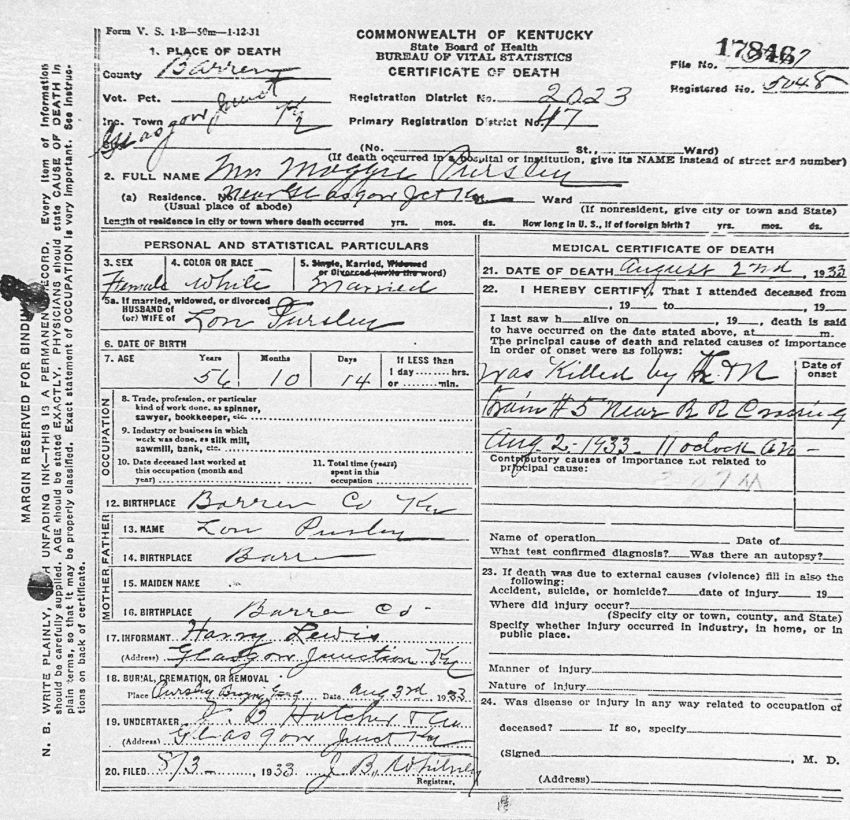 Form V. S. 1-B—50m—1-12-31
COMMONWEALTH OF KENTUCKY
State Board of Health
BUREAU OF VITAL STATISTICS
CERTIFICATE OF DEATH
17846
File No.
Registered No. 5048
1. PLACE OF DEATH
County Barren
Vot. Pct.
Registration District No. 2023
Inc. Town Glasgow Junct Ky
Primary Registration District No. 47
(No. St., Ward)
(If death occurred in a hospital or institution, give its NAME instead of street and number)
2. FULL NAME Mrs Maggie Pursley
(a) Residence. No. Near Glasgow Jct Ky Ward
(Usual place of abode) (If nonresident, give city or town and State)
Length of residence in city or town where death occurred yrs. mos. ds. How long in U. S., if of foreign birth? yrs. mos. ds.
PERSONAL AND STATISTICAL PARTICULARS
3. SEX
Female
4. COLOR OR RACE
White
5. Single, Married, Widowed
or Divorced (write the word)
Married
5a. If married, widowed, or divorced
HUSBAND of
(or) WIFE of Lon Pursley
6. DATE OF BIRTH
7. AGE Years Months Days If LESS than
56 10 14 1 day hrs.
or min.
OCCUPATION
8. Trade, profession, or particular
kind of work done, as spinner,
sawyer, bookkeeper, etc.
9. Industry or business in which
work was done, as silk mill,
sawmill, bank, etc.
10. Date deceased last worked at
this occupation (month and
year)
11. Total time (years)
spent in this
occupation
12. BIRTHPLACE Barren Co Ky
FATHER
13. NAME Lon Pursley
14. BIRTHPLACE Barre
MOTHER
15. MAIDEN NAME
16. BIRTHPLACE Barren Co-
17. INFORMANT Harry Lewis
(Address) Glasgow Junction Ky
18. BURIAL, CREMATION, OR REMOVAL
Place Pursley Date Aug 3rd 1933
19. UNDERTAKER B Hatcher & Co
(Address) Glasgow Junct Ky
20. FILED 8/3-, 1933 J B. Whitney
Registrar.
MEDICAL CERTIFICATE OF DEATH
21. DATE OF DEATH August 2nd, 1933
22. I HEREBY CERTIFY, That I attended deceased from
, 19 to , 19
I last saw h alive on , 19 , death is said
to have occurred on the date stated above, at m.
The principal cause of death and related causes of importance
in order of onset were as follows:
Date of
onset
Was Killed by L & N
train #5 Near R R Crossing
Aug. 2-1933- 11 oclock am-
Contributory causes of importance not related to
principal cause:
Name of operation Date of
What test confirmed diagnosis? Was there an autopsy?
23. If death was due to external causes (violence) fill in also the
following:
Accident, suicide, or homicide? date of injury 19
Where did injury occur?
(Specify city or town, county, and State)
Specify whether injury occurred in industry, in home, or in
public place.
Manner of injury
Nature of injury
24. Was disease or injury in any way related to occupation of
deceased? If so, specify
(Signed , M. D.
(Address)
MARGIN RESERVED FOR BINDING
N. B. WRITE PLAINLY, WITH UNFADING INK—THIS IS A PERMANENT RECORD. Every item of information
should be carefully supplied. AGE should be stated EXACTLY. PHYSICIANS should state CAUSE OF DEATH in
plain terms, so that it may be properly classified. Exact statement of OCCUPATION is very important. See instruc-
tions on back of certificate.